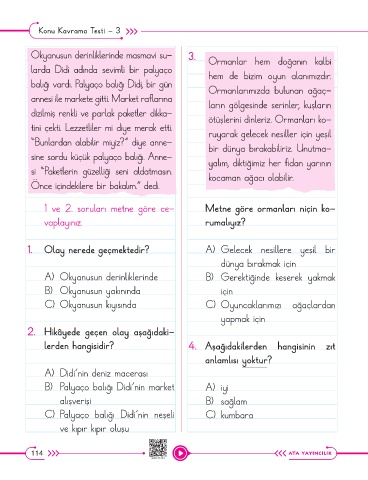 Konu Kavrama Testi - 3
Okyanusun derinliklerinde masmavi su-
larda Didi adında sevimli bir palyaço
balığı vardı. Palyaço balığı Didi, bir gün
annesi ile markete gitti. Market raflarına
dizilmiş renkli ve parlak paketler dikka-
tini çekti. Lezzetliler mi diye merak etti.
“Bunlardan alabilir miyiz?” diye anne-
sine sordu küçük palyaço balığı. Anne-
si “Paketlerin güzelliği seni aldatmasın.
Önce içindekilere bir bakalım.” dedi.
1 ve 2. soruları metne göre ce-
vaplayınız.
1. Olay nerede geçmektedir?
A) Okyanusun derinliklerinde
B) Okyanusun yakınında
C) Okyanusun kıyısında
2. Hikâyede geçen olay aşağıdaki-
lerden hangisidir?
A) Didi’nin deniz macerası
B) Palyaço balığı Didi’nin market
alışverişi
C) Palyaço balığı Didi’nin neşeli
ve kıpır kıpır oluşu
3.
Ormanlar hem doğanın kalbi
hem de bizim oyun alanımızdır.
Ormanlarımızda bulunan ağaç-
ların gölgesinde serinler, kuşların
ötüşlerini dinleriz. Ormanları ko-
ruyarak gelecek nesiller için yeşil
bir dünya bırakabiliriz. Unutma-
yalım, diktiğimiz her fidan yarının
kocaman ağacı olabilir.
Metne göre ormanları niçin ko-
rumalıyız?
A) Gelecek nesillere yeşil bir
dünya bırakmak için
B) Gerektiğinde keserek yakmak
için
C) Oyuncaklarımızı ağaçlardan
yapmak için
4. Aşağıdakilerden hangisinin zıt
anlamlısı yoktur?
A) iyi
B) sağlam
C) kumbara
114
ATA YAYINCILIK